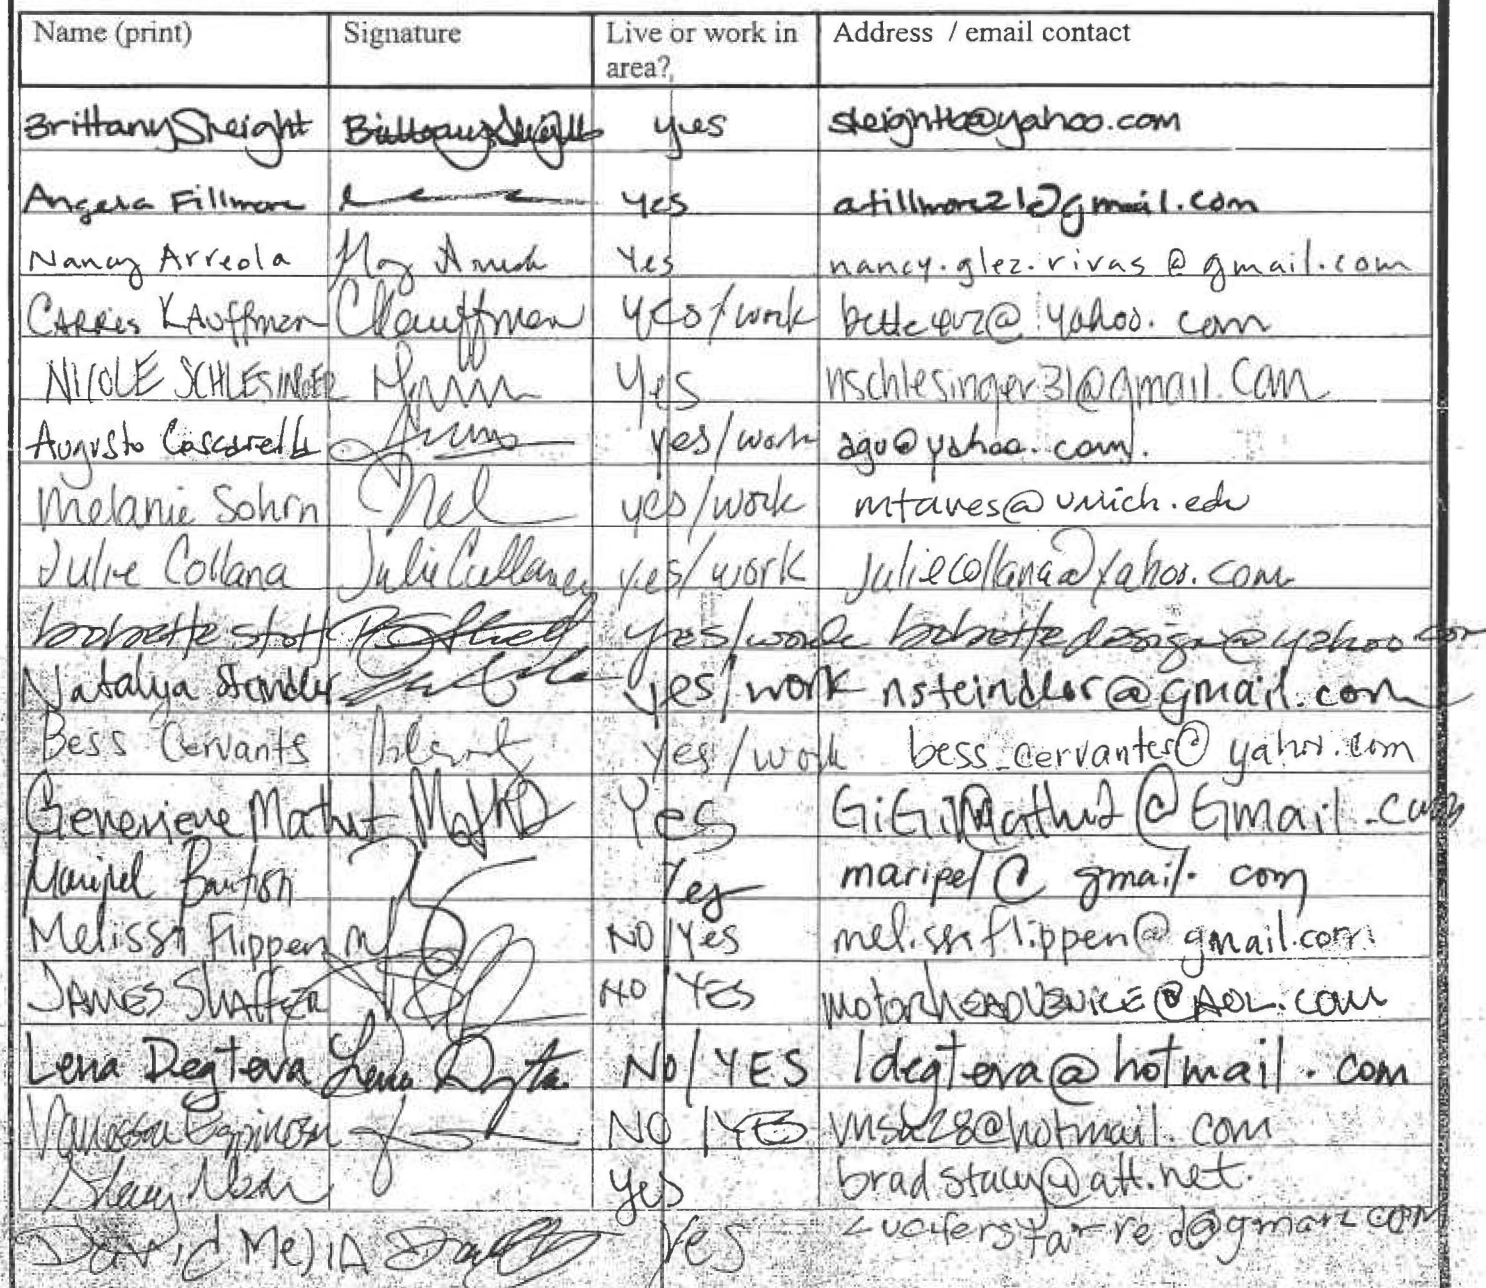 Name (print) Signature Live or work in area? Address / email contact
Brittany Sleight Brittany Sleight yes sleightb@yahoo.com
Angela Fillmore yes afillmore21@gmail.com
Nancy Arreola yes nancy.glez.rivas@gmail.com
Carries Kauffman CKauffman yes/work @yahoo.com
NICOLE SCHLESINGER Yes nschlesinger31@gmail.com
Augusto Cascarella yes/work agu@yahoo.com.
Melanie Sohrn Mel yes/work mtaves@umich.edu
Julie Collana yes/work juliecollana@yahoo.com
bobette stott yes/work bobettedesign@yahoo.com
Natalya Steindler yes/work nsteindler@gmail.com
Bess Cervants yes/work bess_cervantes@yahoo.com
Genevieve Mathut Yes @Gmail.com
Maripel Yes maripel@gmail.com
Melissa Flippen NO/Yes melissaflippen@gmail.com
JAMES SHAFFER NO/YES motorheadvenice@AOL.com
Lena Degteva Lena NO/YES ldegteva@hotmail.com
Vanessa Espinosa NO/YES @hotmail.com
yes bradstacy@att.net
David MEJIA yes Luciferstarred@gmail.com